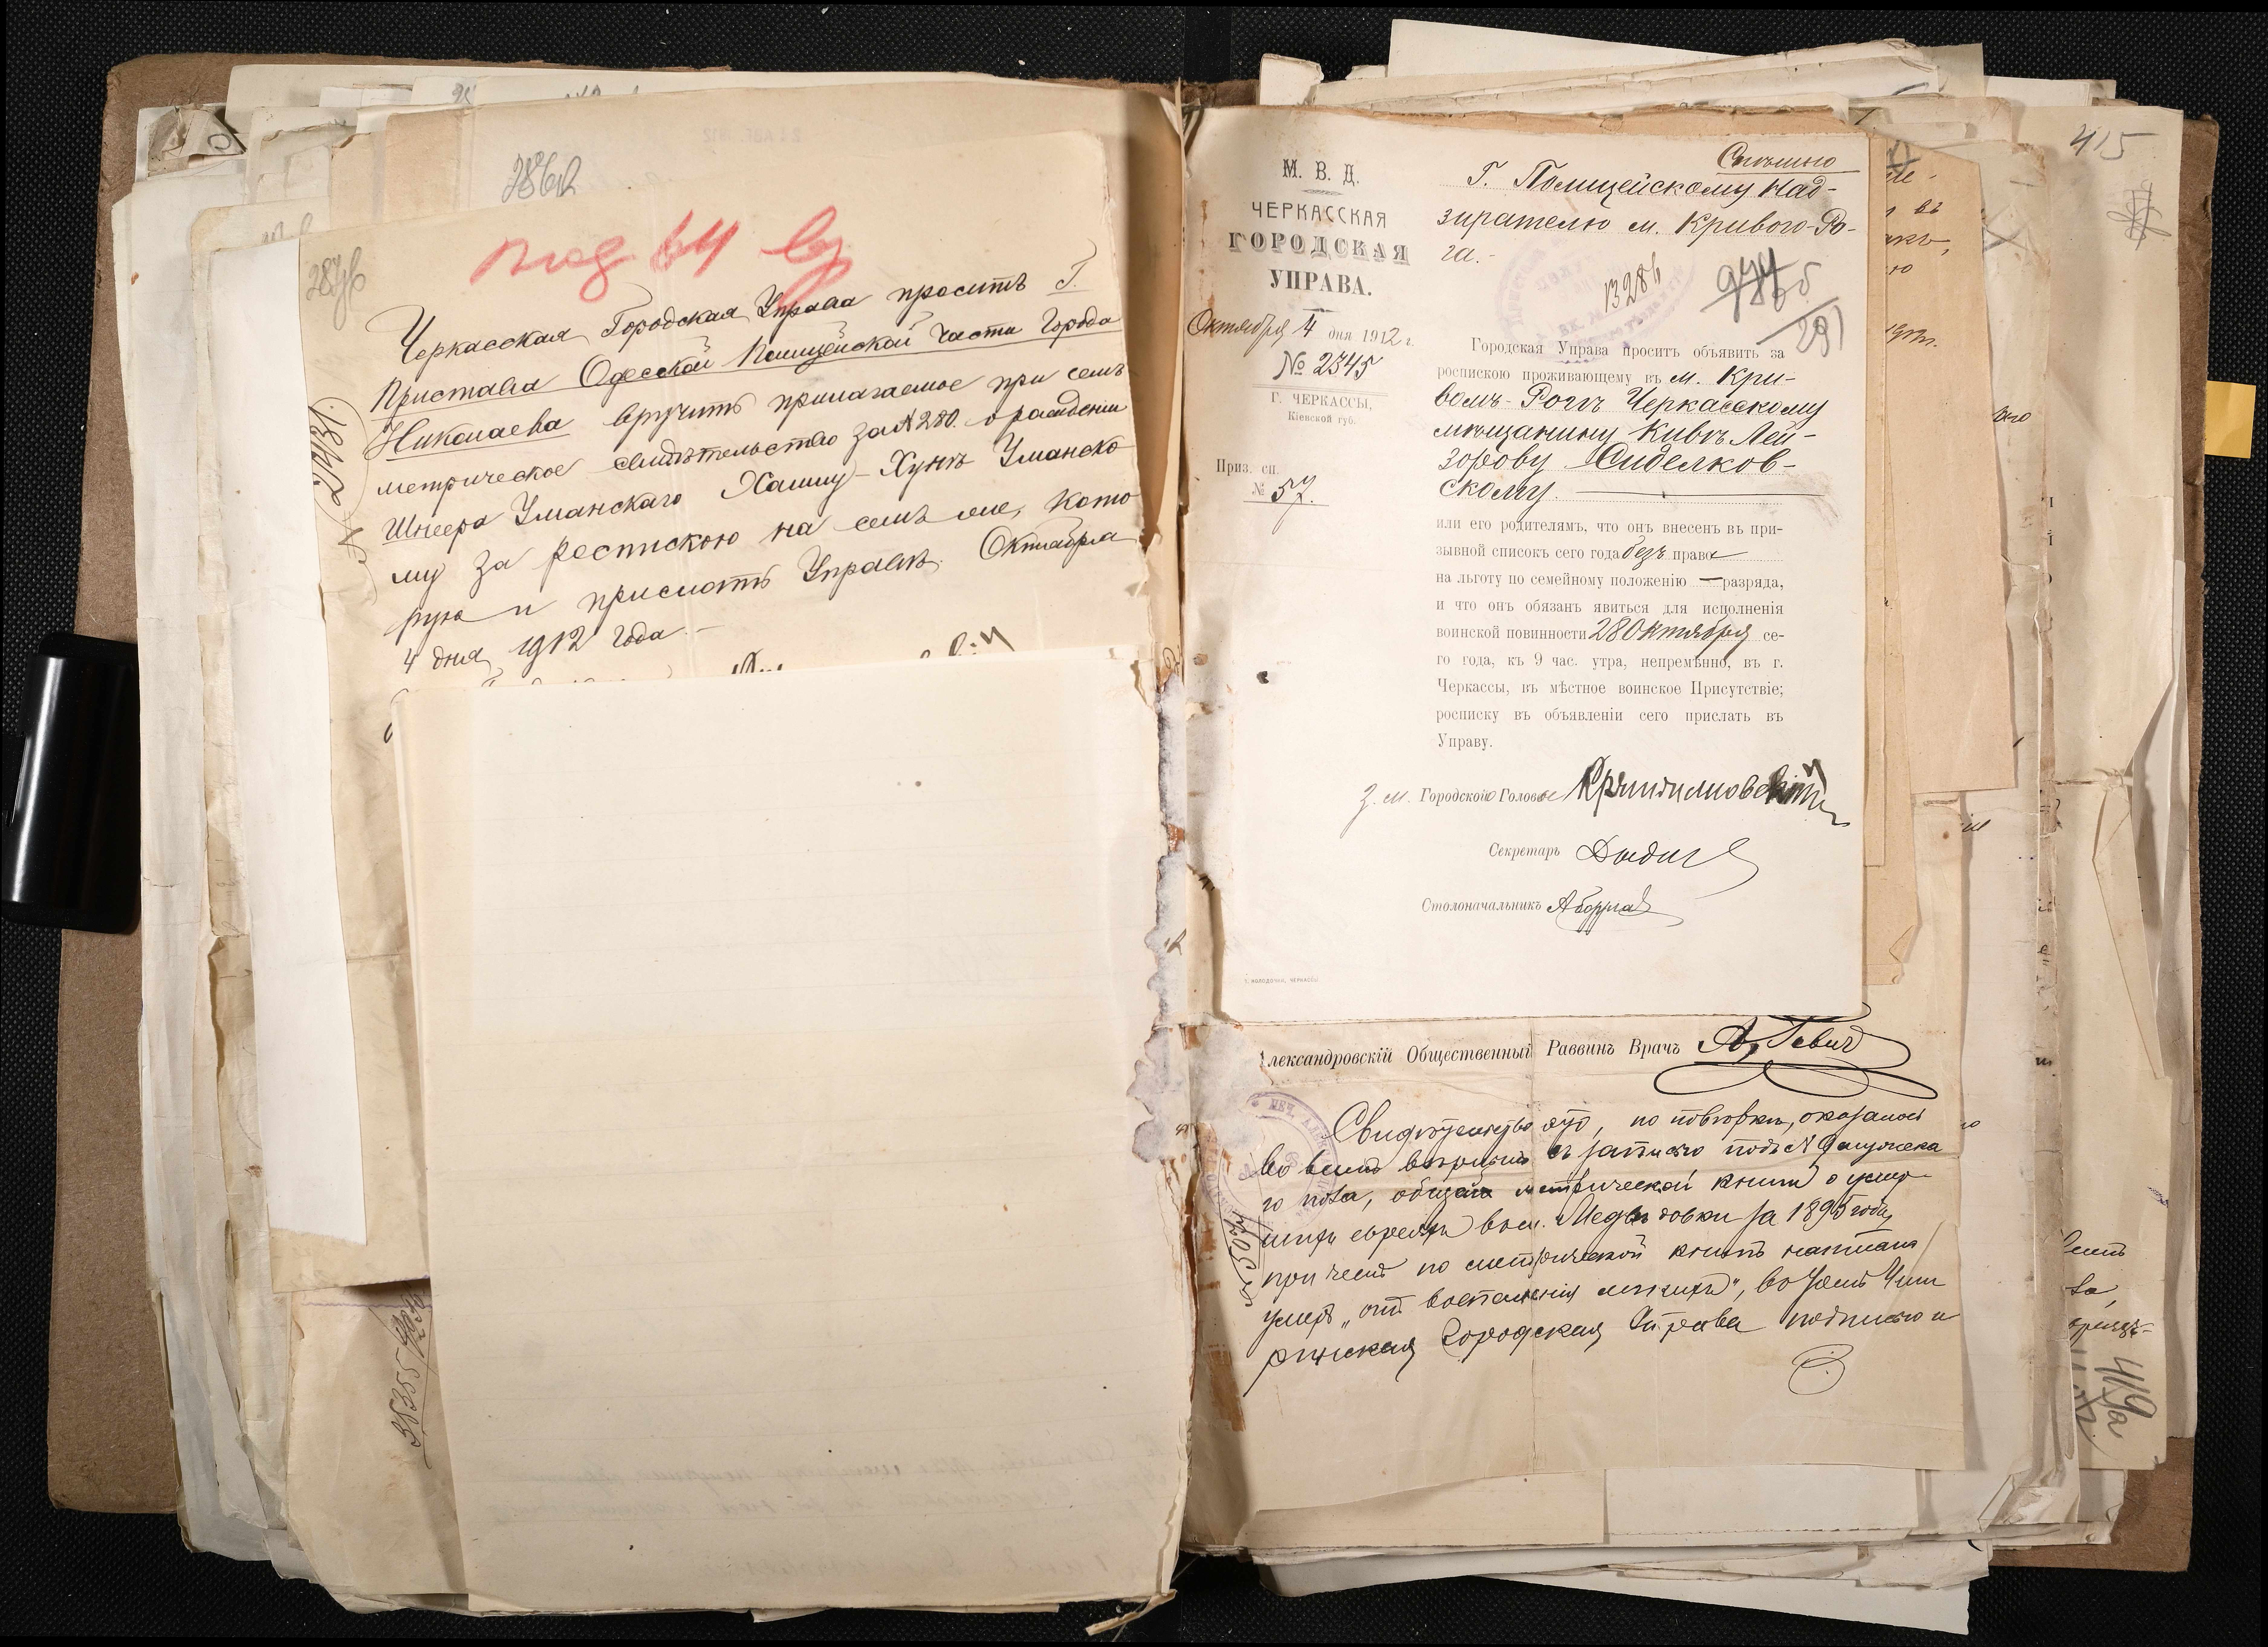 под 64
Черкасская Городская Управа проситъ Г.
Пристава Одесской Полицейской части Города
Николаева вручить прилагаемое при семъ
метрическое свидѣтельство за № 280 о рожденіи
Шнеера Уманскаго Хаиму-Хунъ Уманско
му за роспискою на семъ же, кото
рую и прислать Управѣ. Октября
4 дня 1912 года.
№ 2431
38355
415
Спѣшно
М. В. Д.
ЧЕРКАССКАЯ
ГОРОДСКАЯ
УПРАВА.
Октября 4 дня 1912 г.
№ 2345
Г. ЧЕРКАССЫ,
Кіевской губ.
Приз. сп.
№ 57.
Г. Полицейскому Над-
зирателю м. Кривого-Ро-
га.-
13286
291
Городская Управа проситъ объявить за
роспискою проживающему въ м. Кри-
вомъ-Рогѣ Черкасскому
мѣщанину Кивѣ Лей-
зорову Сиделков-
скому.
или его родителямъ, что онъ внесенъ въ при-
зывной списокъ сего года безъ права
на льготу по семейному положенію — разряда,
и что онъ обязанъ явиться для исполненія
воинской повинности 28 Октября се-
го года, къ 9 час. утра, непремѣнно, въ г.
Черкассы, въ мѣстное воинское Присутствіе;
росписку въ объявленіи сего прислать въ
Управу.
З. м. Городского Головы
Секретарь
Столоначальникъ
Т. КОЛОДОЧКИ, ЧЕРКАССЫ
лександровскій Общественный Раввинъ Врачъ
Свидѣтельство это, по повѣркѣ, оказалось
во всемъ вѣрнымъ съ записью подъ № 9 мужска
го пола, общей метрической книги о умер
шихъ евреяхъ въ м. Медвѣдовки за 1895 годъ,
при чемъ по метрической книгѣ написана
умеръ „отъ воспаленія легкихъ", въ чемъ Чиги
ринская Городская Управа подписью и
№ 5074
419